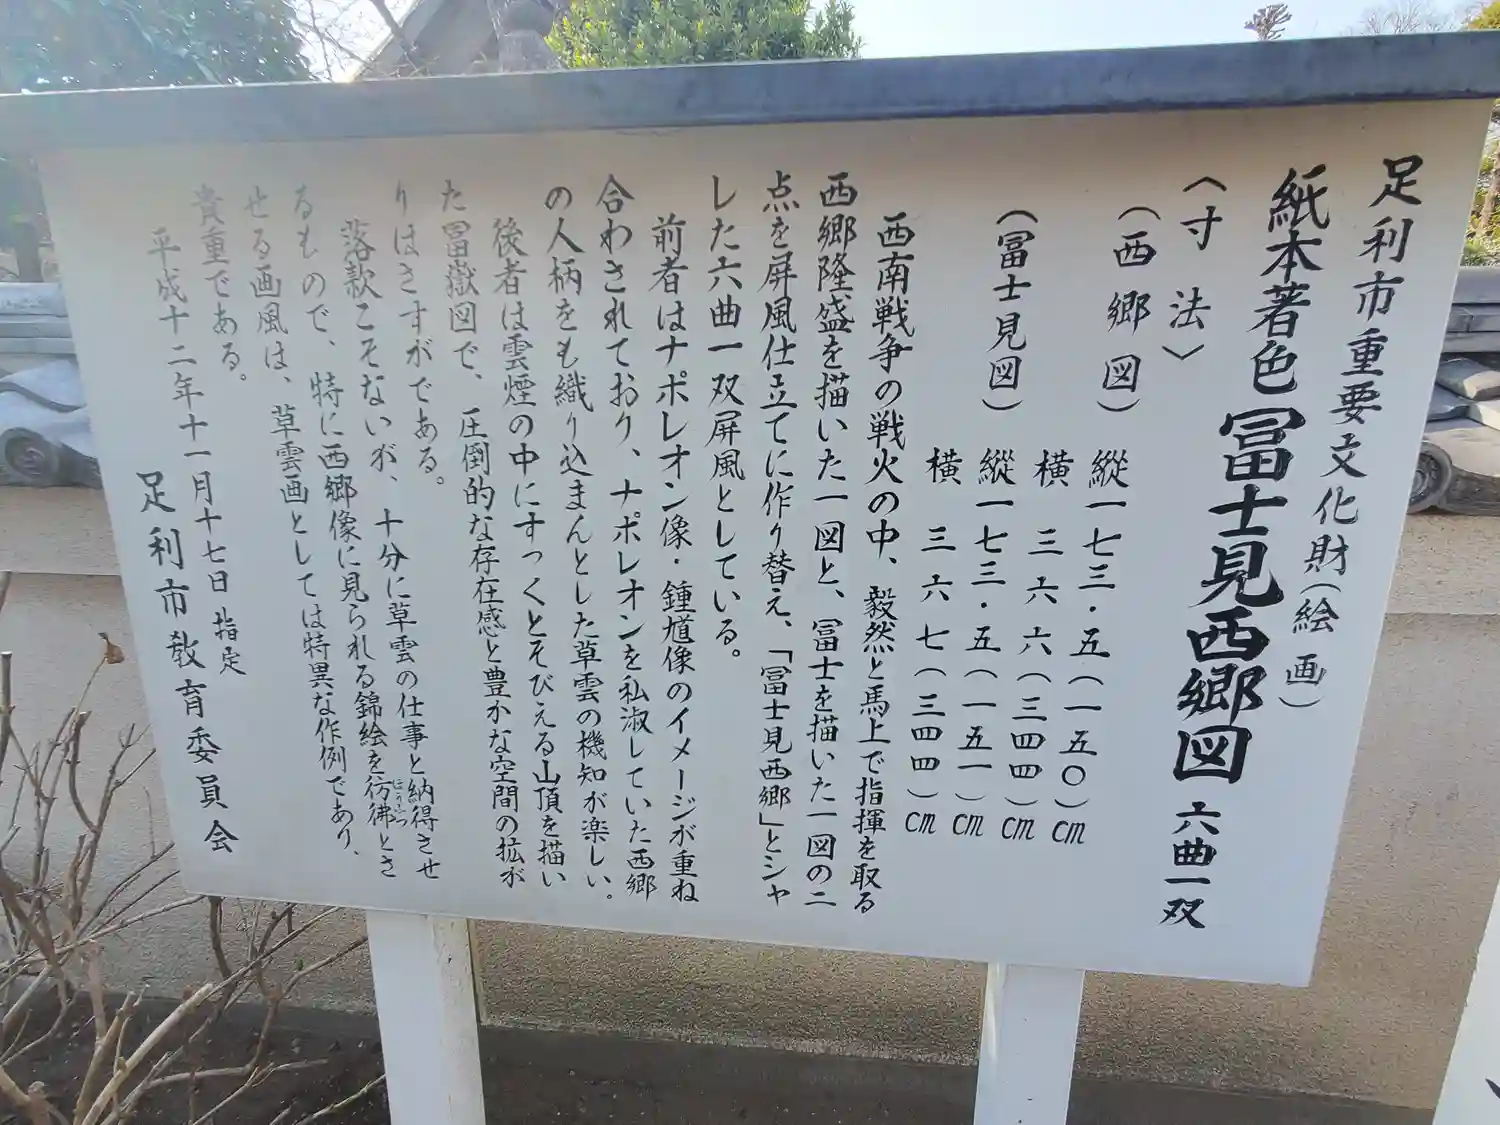 足利市重要文化財（絵画）
紙本著色 冨士見西郷図 六曲一双
〈寸法〉
（西郷図） 縦一七三・五（一五〇）㎝
横 三六六（三四四）㎝
（冨士見図） 縦一七三・五（一五一）㎝
横 三六七（三四四）㎝
西南戦争の戦火の中、毅然と馬上で指揮を取る
西郷隆盛を描いた一図と、冨士を描いた一図の二
点を屏風仕立てに作り替え、「冨士見西郷」とシャ
した六曲一双屏風としている。
前者はナポレオン像・鍾馗像のイメージが重ね
合わされており、ナポレオンを私淑していた西郷
の人柄をも織り込まんとした草雲の機知が楽しい。
後者は雲煙の中にすっくとそびえる山頂を描い
た冨嶽図で、圧倒的な存在感と豊かな空間の拡が
りはさすがである。
落款こそないが、十分に草雲の仕事と納得させ
るもので、特に西郷像に見られる錦絵を彷彿（ほうふつ）とさ
せる画風は、草雲画としては特異な作例であり、
貴重である。
平成十二年十一月十七日 指定
足利市教育委員会